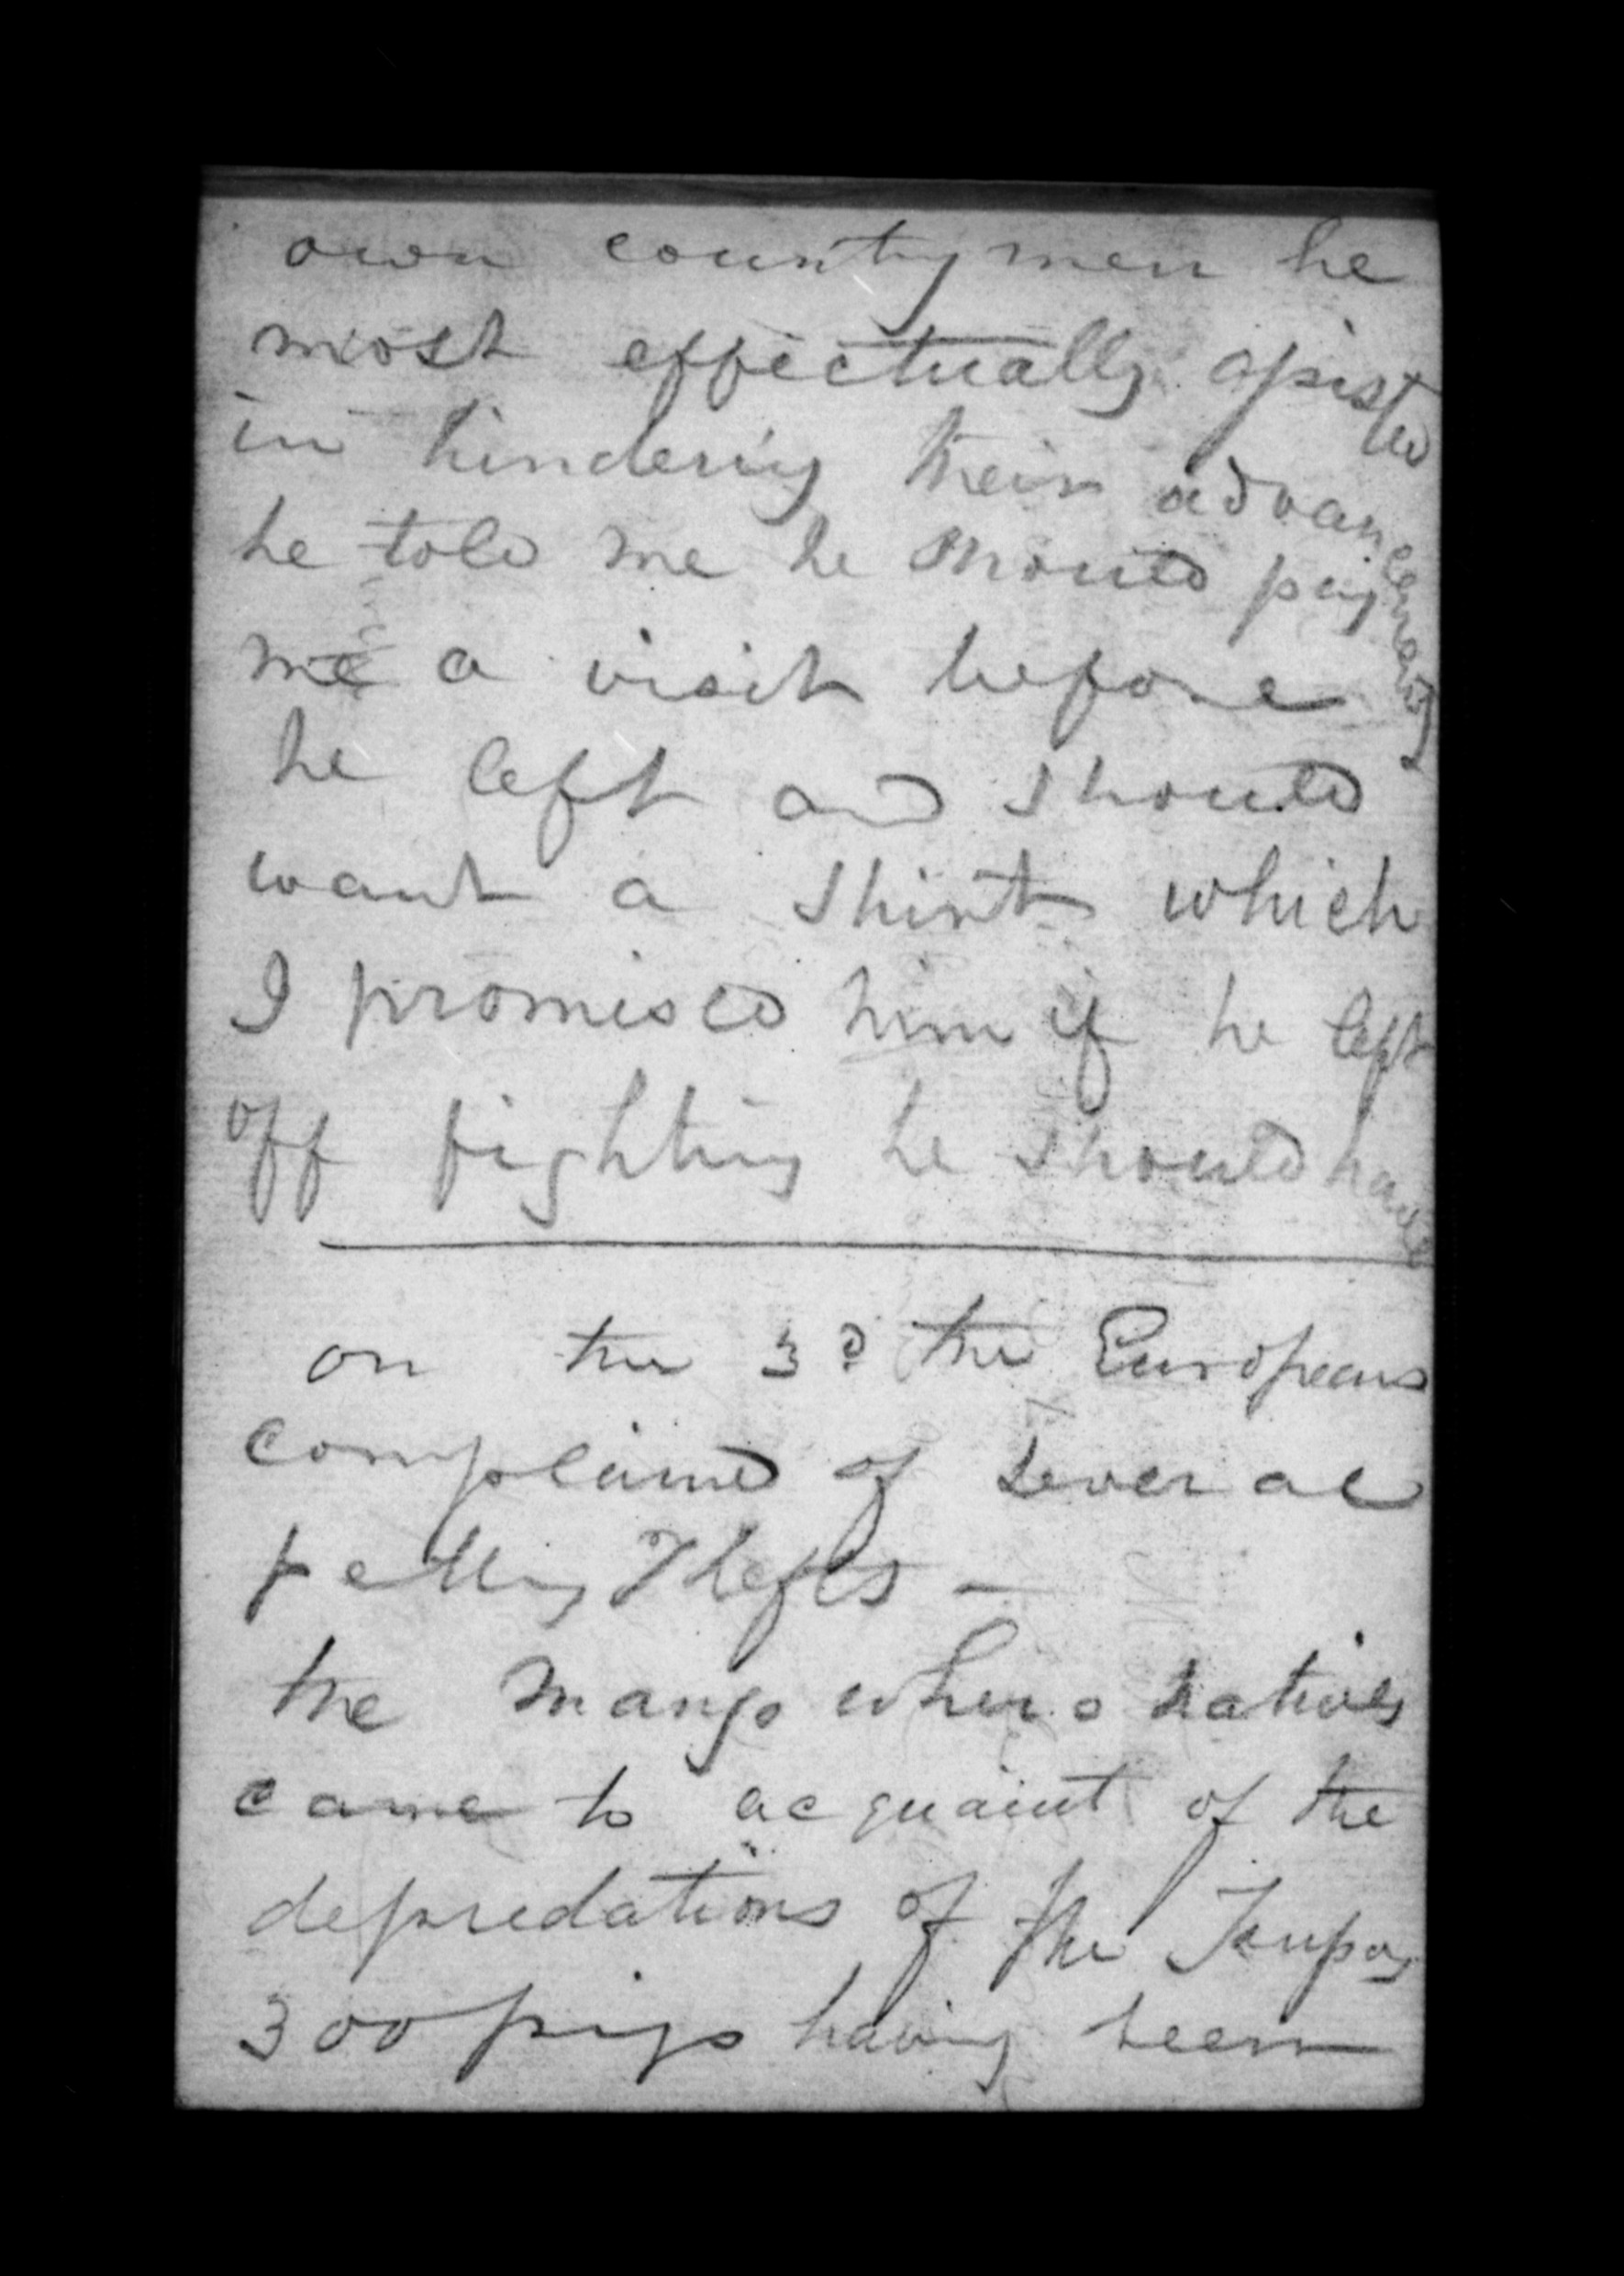 own countrymen he
most effectually assisted
in hindering their advancement
he told me he should pay
me a visit before
he left and should
want a shirt which
I promised him if he left
off fighting he should have
on the 3d the Europeans
complaind of several
petty Thefts —
the natives
came to acquaint of the
depredations of the Taupos
300 pigs having been